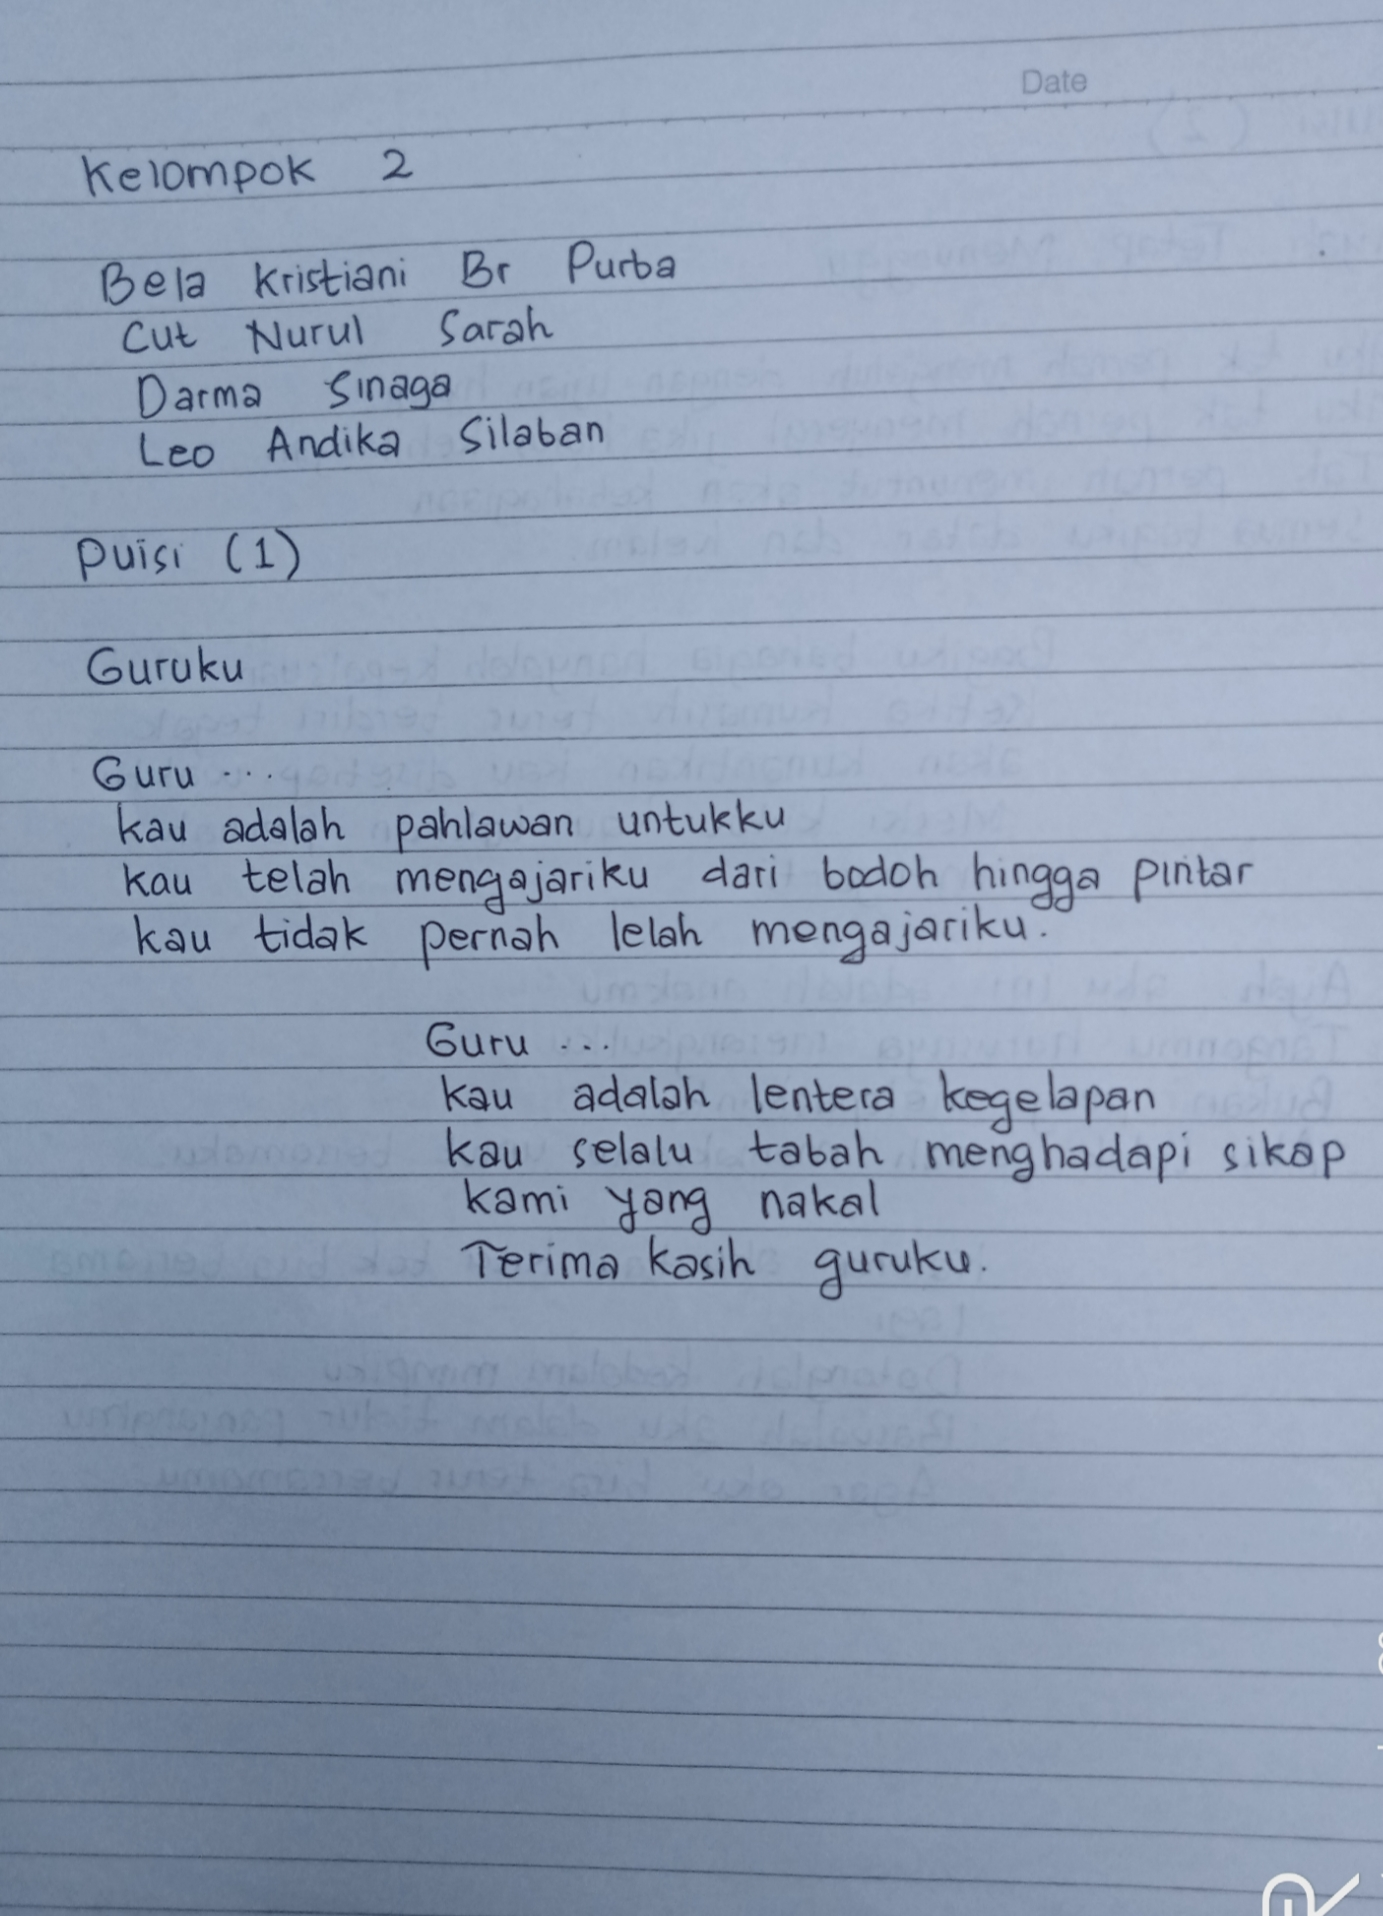 Date
Kelompok 2
Bela Kristiani Br Purba
Cut Nurul Sarah
Darma Sinaga
Leo Andika Silaban
Puisi (1)
Guruku
Guru ....
kau adalah pahlawan untukku
kau telah mengajariku dari bodoh hingga pintar
kau tidak pernah lelah mengajariku.
Guru ...
kau adalah lentera kegelapan
kau selalu tabah menghadapi sikap
kami yang nakal
Terima kasih guruku.